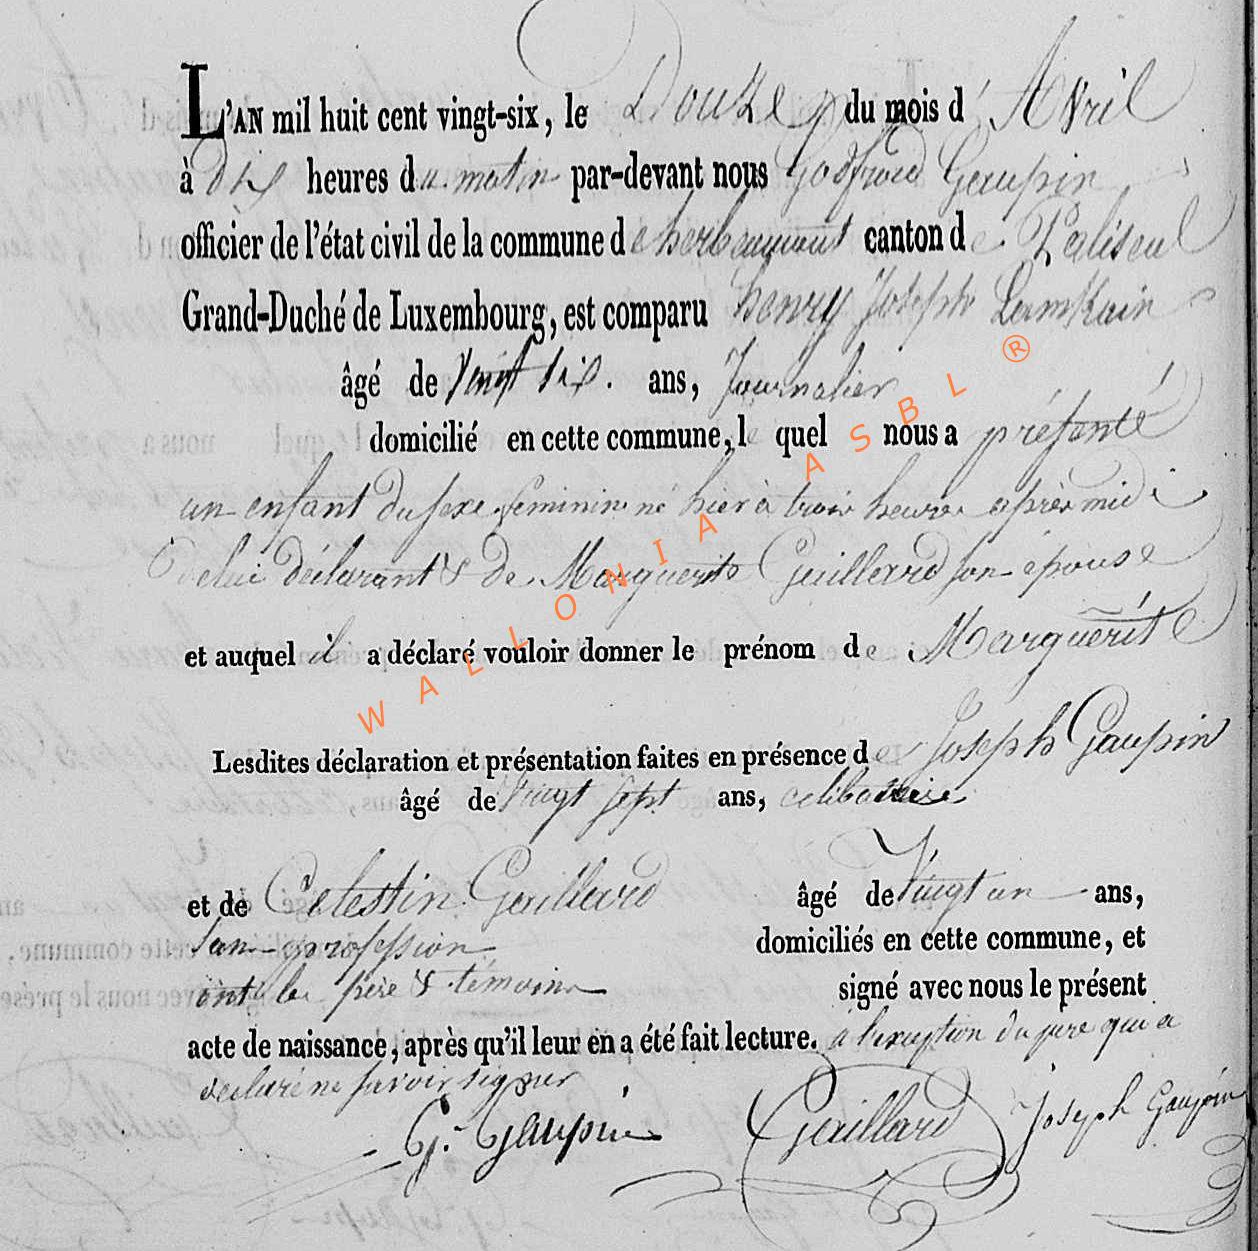 L'AN mil huit cent vingt-six, le Douze du mois d' Avril
à dix heures du matin par-devant nous Godfroid Gaupin
officier de l'état civil de la commune de herbeumont canton de Paliseul
Grand-Duché de Luxembourg, est comparu henry Joseph Lamkain
âgé de Vingt six. ans, Journalier
domicilié en cette commune, le quel nous a présenté
un enfant du sexe feminin né hier à trois heures après midi
de lui déclarant & de Marguerite Gaillard son épouse
et auquel il a déclaré vouloir donner le prénom de Marguerite
Lesdites déclaration et présentation faites en présence de Joseph Gaupin
âgé de Vingt sept ans, celibataire
et de Celestin Gaillard âgé de Vingt un ans,
sans profession domiciliés en cette commune, et
ont les père & témoins signé avec nous le présent
acte de naissance, après qu'il leur en a été fait lecture. à l'exception du père qui a
declaré ne savoir signer
G. Gaupin Gaillard Joseph Gaupin
WALLONIA ASBL ®